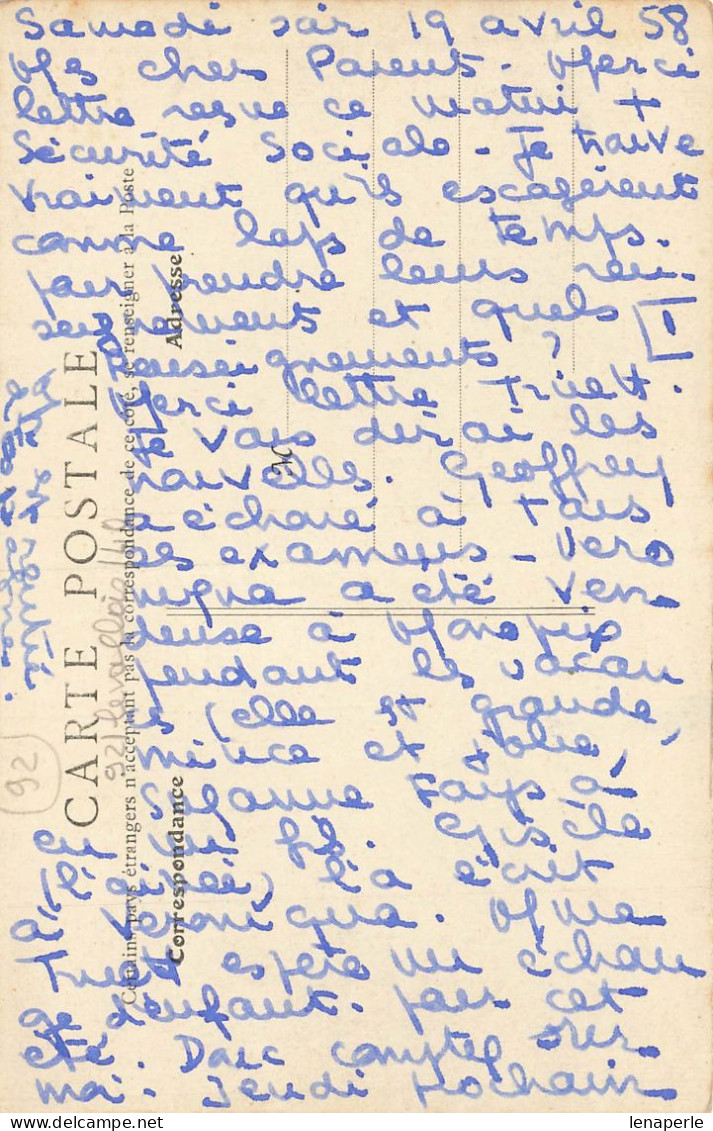 Samedi soir 19 avril 58
Mes chers Parents. Merci
lettre reçue ce matin +
Sécurité Sociale - Je trouve
vraiment qu'ils exagèrent
comme laps de temps.
pour prendre leurs ren-
seignements et quels
Renseignements ? I
Merci lettre Truett.
Je vais dirai les
nouvelles. Geoffrey
a échoué à tous
ses examens - Vero
nique a été ven
deuse à Monoprix
pendant les vacan
ces (elle est grande,
mince et jolie,
Suzanne Fays a
eu un fils. Gisèle
(l'aînée) l'a écrit
à Véronique. Mme
Truett espère un échan
ge d'enfant. pour cet
été. Donc comptez sur
moi. Jeudi prochain
CARTE POSTALE
Certains pays étrangers n'acceptant pas la correspondance de ce côté, se renseigner à la Poste
Correspondance
Adresse
M
92/Levallois
92
lenaperle